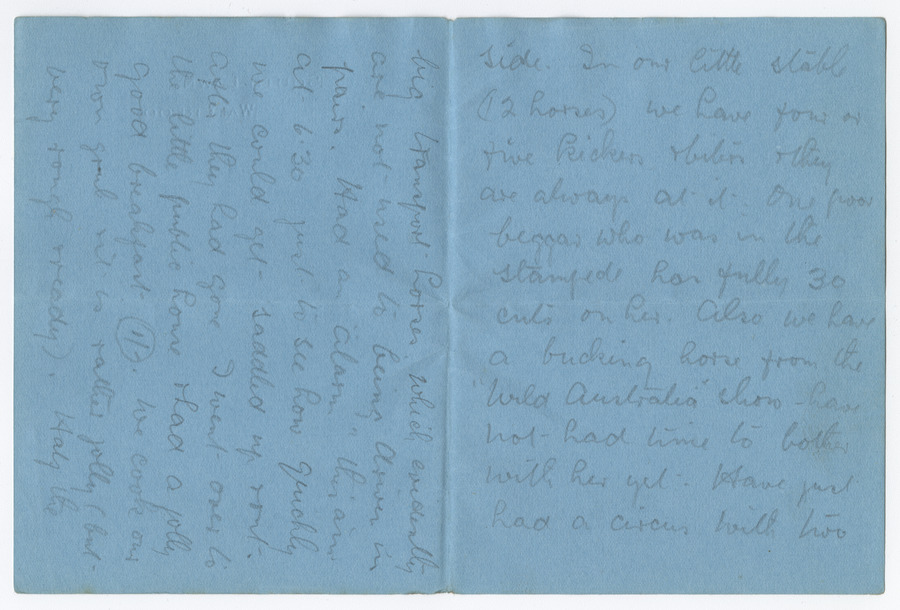 side. In our little stable
(12 horses) we have four or
five kickers & biters & they
are always at it. One poor
beggar who was in the
stampede has fully 30
cuts on her. Also we have
a bucking horse from the
"Wild Australia" show - have
not had time to bother
with her yet. Have just
had a circus with two
big transport horses which evidently
are not used to being driven in
pairs. Had an "alarm" this am
at 6.30 just to see how quickly
we could get saddled up & out.
After they had gone I went over to
the little public house & had a jolly
good breakfast (1/-). We cook our
own grub & it is rather jolly (but
very rough & ready). Half the